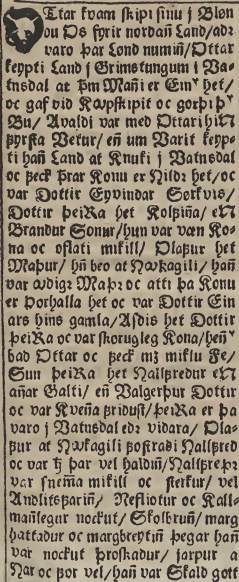 Ttar kvam skipi sinu j Bløn
du Os fyrir nordañ Land/adr
varo þar Lønd numiñ/Ottar
keypti Land j Grimstungum j Va-
tnsdal at þm Mañi er Ein het/
oc gaf vid Kaupskipit oc gorþi þ
Bu/ Avaldi var med Ottari hiñ
fyrsta Vetur/ eñ um Varit keyp-
ti hañ Land at Knuki j Vatnsdal
oc feck þrar Konu er Hildr het/oc
var Dottir Eyvindar Sørkvis/
Dottir þeiRa het Kolfiña/ eñ
Brandur Sonur/hun var væn Ko-
na oc oflati mikill/ Olafur het
Maþur/ hñ beo at Haukagili/ hañ
var audigr Maþr oc atti þa Konu
er Þorhalla het oc var Dottir Ein
ars hins gamla/Asdis het Dottir
þeiRa oc var skorugleg Kona/heñ
bad Ottar oc feck mz miklu Fe/
Sun þeiRa het Hallfredur eñ
añar Galti/ eñ Valgerþur Dottir
oc var Kveña fridust/þeiRa er þa
varo j Vatnsdal edr vidara/ Ola-
fur at Haukagili fostradi Hallfred
oc var þar vel haldiñ/Hallfreþr
var snema mikill oc sterkur/ vel
Andlitsfariñ/ Nefliotur oc Kall-
mañlegur nockut/ Skolbruñ/ marg
hattadur oc margbreytiñ þegar hañ
var nockut þroskadur/ jarpur a
Har oc þor vel/hañ var Skald gott